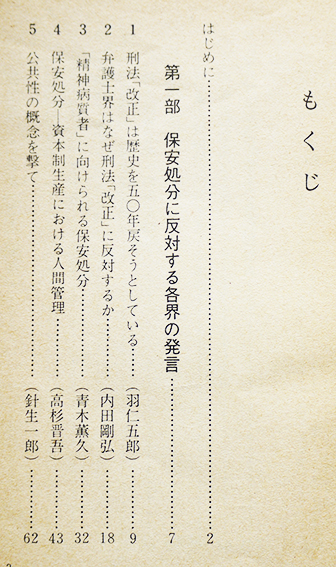 もくじ
はじめに……………………………2
第一部　保安処分に反対する各界の発言……………………7
1　刑法「改正」は歴史を五〇年戻そうとしている………(羽仁五郎)………9
2　弁護士界はなぜ刑法「改正」に反対するか…………(内田剛弘)………18
3　「精神病質者」に向けられる保安処分…………(青木薫久)………32
4　保安処分―資本制生産における人間管理…………(高杉晋吾)………43
5　公共性の概念を撃て…………………(針生一郎)………62